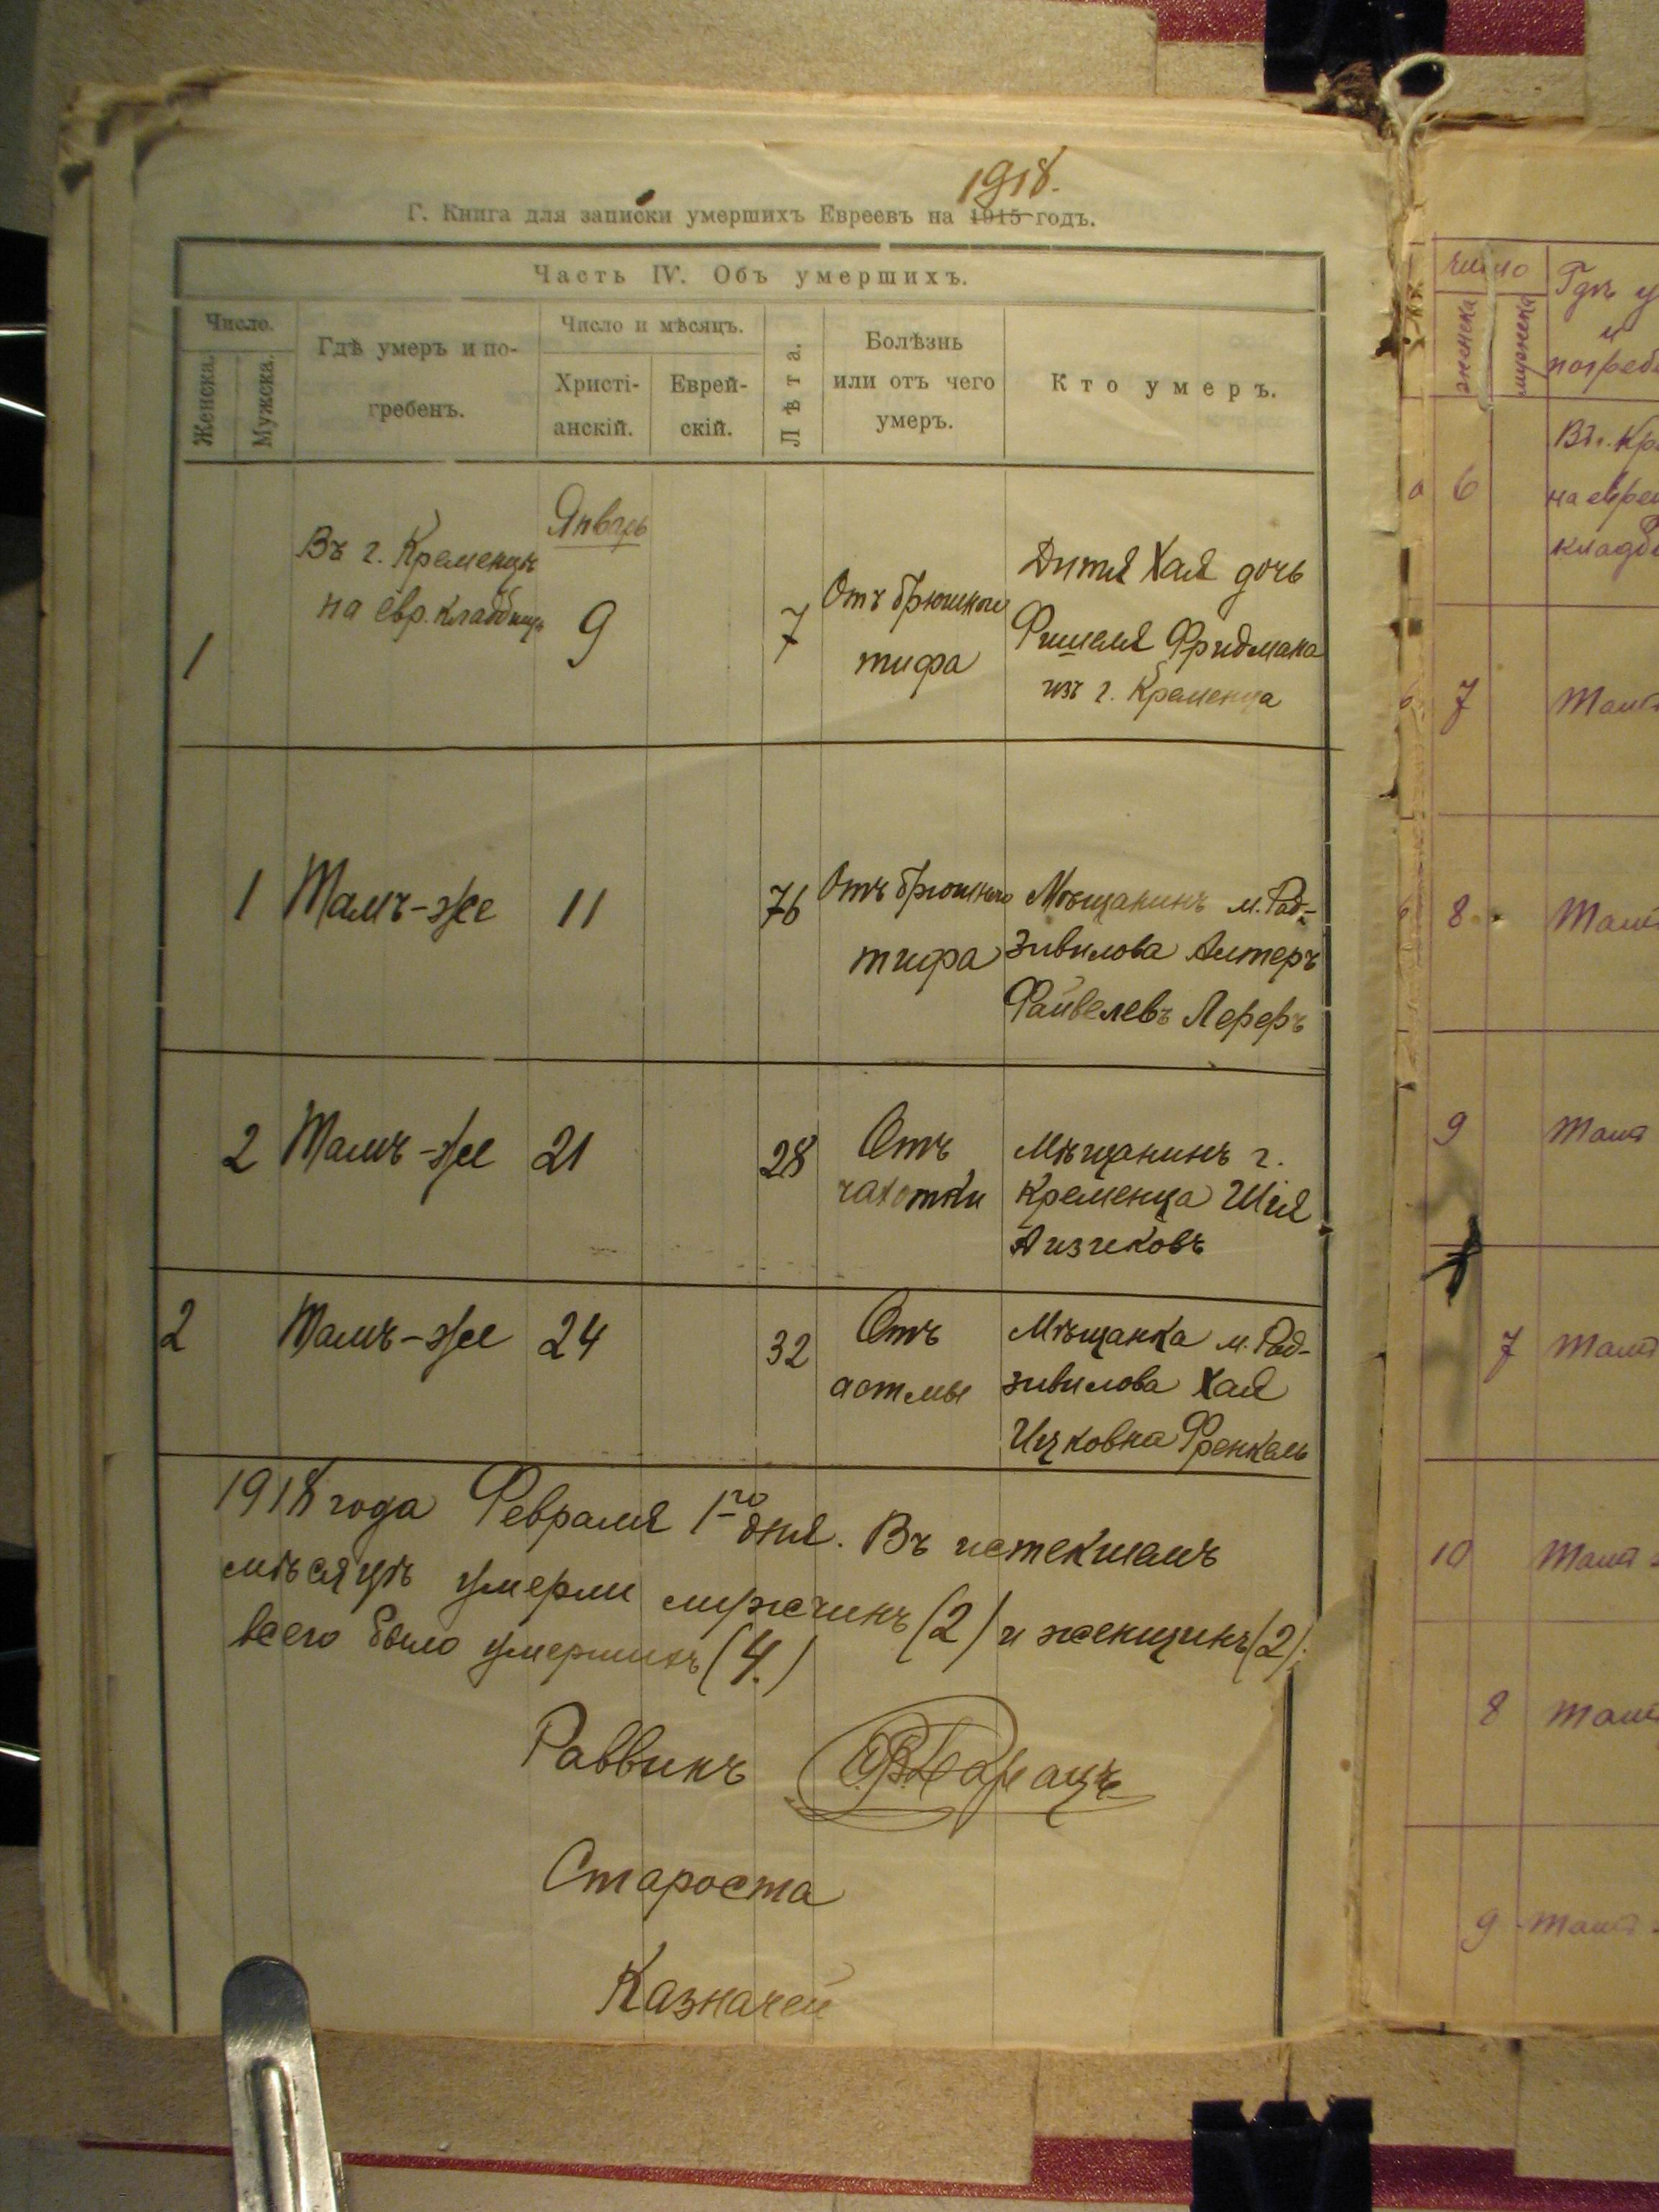 1918.
Г. Книга для записки умершихъ Евреевъ на 1915 годъ.
Часть IV. Объ умершихъ.
Число.
Женска.
Мужска.
Гдѣ умеръ и по-
гребенъ.
Число и мѣсяцъ.
Христі-
анскій.
Еврей-
скій.
Лѣта.
Болѣзнь
или отъ чего
умеръ.
Кто умеръ.
1
Въ г. Кременцѣ
на евр. кладбищѣ
Январь
9
7
Отъ брюшного
тифа
Дитя Хая дочь
Фишеля Фридмана
изъ г. Кременца
1
Тамъ-же
11
76
Отъ брюшного
тифа
Мѣщанинъ м. Рад-
зивилова Алтеръ
Файвелевъ Лереръ
2
Тамъ-же
21
28
Отъ
чахотки
Мѣщанинъ г.
Кременца Шія
Айзиковъ
2
Тамъ-же
24
32
Отъ
астмы
Мѣщанка м. Рад-
зивилова Хая
Ицковна Френкель
1918 года Февраля 1го дня. Въ истекшемъ
мѣсяцѣ умерли мужчинъ (2) и женщинъ (2).
всего было умершихъ (4.)
Раввинъ
Староста
Казначей
число
женска
мужска
Гдѣ у
и
погреб
6
Въ г. Кр
на евре
кладб
7
Тамъ
8
Тамъ
9
Тамъ
7
Тамъ
10
Тамъ
8
Тамъ
9
Тамъ-